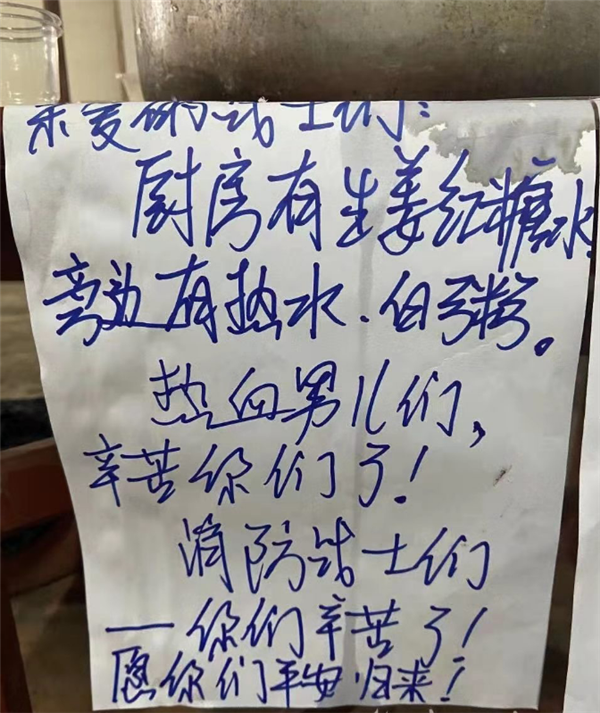 亲爱的战士们:
厨房有生姜红糖水,
旁边有热水、白粥。
热血男儿们,
辛苦你们了!
消防战士们
——你们辛苦了!
愿你们平安归来!